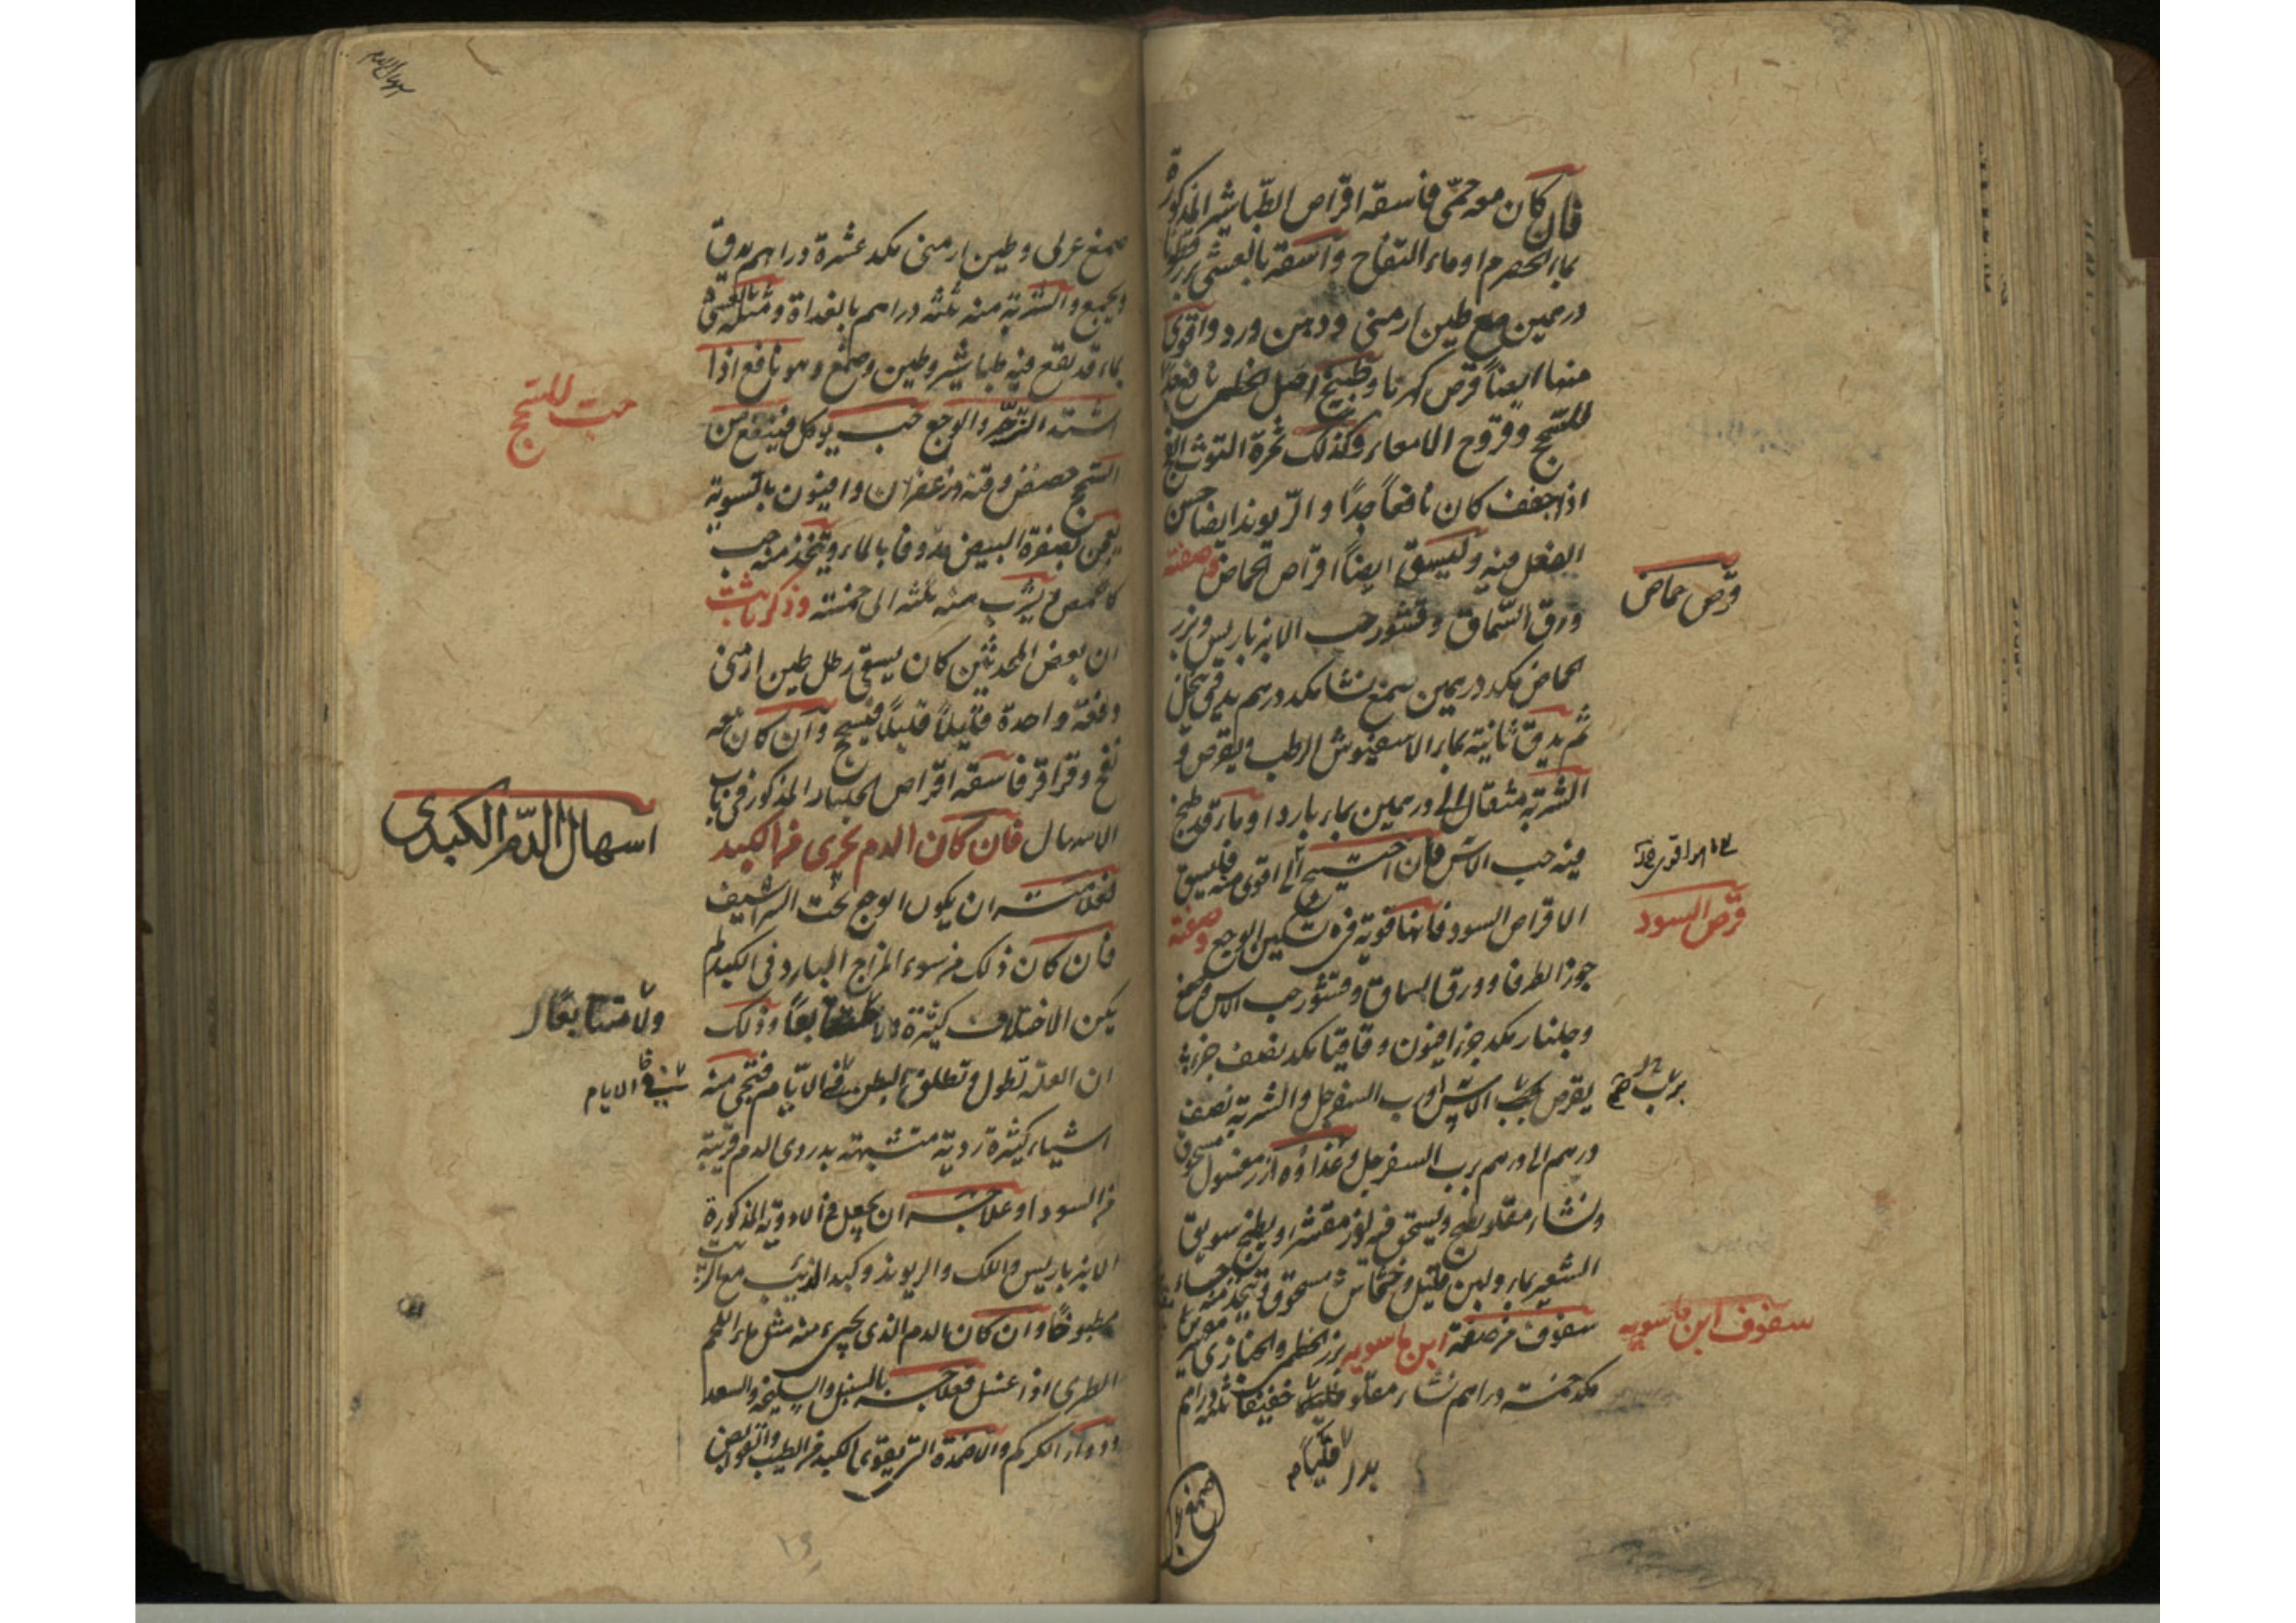 فان كان معه حمى فاسقه اقراص الطباشير المذكورة
بماء الحصرم او ماء التفاح واسقه بالعشى بزر قطونا
درهمين مع طين ارمنى ودهن ورد واقوى
منها ايضاً قرص كهربا وطبيخ اصل الخطمى نافع جداً
للسحج وقروح الامعاء وكذلك ثمرة التوث الفج
اذا جفف كان نافعاً جداً والريوند ايضا حسن
الفعل فيه وليسق ايضاً اقراص الحماض وصفته
ورق السماق وقشور حب الانبرباريس وبزر
الحماض مكد درهمين صمغ نشا مكد درهم يدق وينخل
ثم يدق ثانية بماء الاسفيوش الرطب ويقرص و
الشربة مثقال الى درهمين بماء بارد او ماء قد طبخ
فيه حب الآس فان احتيج الى اقوى منه فليسق
الاقراص السود فانها قوية فى تسكين الوجع وصفته
جوز الطرفا وورق السماق وقشور حب الاس وصمغ
وجلنار مكد جزء افيون وقاقيا مكد نصف جزء
يقرص برب الآس او رب السفرجل والشربة نصف
درهم الى درهم برب السفرجل وغذاؤه ارز مغسول مسحوق
ونشاء مقلو يطبخ ويسحق فيه لوز مقشر ويطبخ سويق
الشعير بماء ولبن قليل وخشخاش مسحوق ويتخذ منه حساء
سفوف من صفة ابن ماسويه بزر الخطمى والخبازى
مكد خمسة دراهم نشاء مقلو خفيفا ثلثة دراهم
قرص حماض
قرص السود
برب
سفوف ابن ماسويه
صمغ عربى وطين ارمنى مكد عشرة دراهم يدق
ويجمع والشربة منه ثلثه دراهم بالغداة ومثله بالعشى
بماء قد نقع فيه طباشير وطين وصمغ وهو نافع اذا
اشتد الزحير والوجع حب يوكل فينفع من
السحج حضض وقنه وزعفران وافيون بالتسوية
يعجن بصفرة البيض مدوفا بالماء ويتخذ منه حب
كالحمص ويشرب منه ثلثه الى خمسته وذكر ثابت
ان بعض المحدثين كان يسقى رطل طين ارمنى
دفعة واحدة قليلاً قليلاً فينجح وان كان معه
نفخ وقراقر فاسقه اقراص الجلنار المذكور فى باب
الاسهال فان كان الدم يجرى من الكبد
فعلامته ان يكون الوجع تحت الشراسيف
فان كان ذلك من سوء المزاج البارد فى الكبد لم
يكن الاختلاف كثيرة ولا متتابعاً وذلك
ان العلة تطول وتطلق البطن فى الايام فتجى منه
اشياء كثيرة ردية متشبهة بدردى الدم قريبة
من السودا وعلاجه ان يجعل فى الادوية المذكورة
الانبرباريس واللك والريوند وكبد الذئب مع الزبيب
مطبوخاً وان كان الدم الذى يجىء منه مثل ماء اللحم
الطرى اذا غسل فعلاجه بالسنبل والسليخة والسعد
ودواء الكركم والاضمدة التى يقوى الكبد من الطيب والقوابض
حب للسحج
اسهال الدم الكبدى
ولا متتابعاً
فى الايام